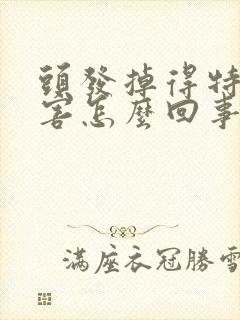 頭發掉得特
害怎麼回事
滿座衣冠勝雪